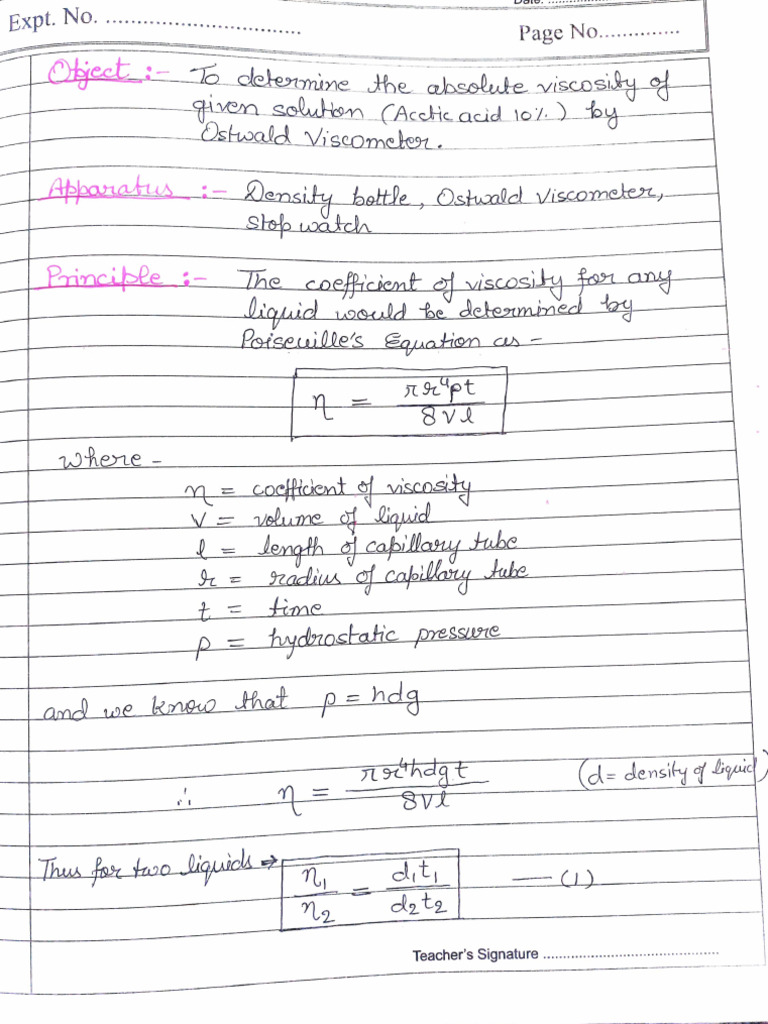 Date. ..............
Expt. No. ..............................
Page No..............
Object :- To determine the absolute viscosity of
given solution (Acetic acid 10%) by
Ostwald Viscometer.
Apparatus :- Density bottle, Ostwald Viscometer,
Stop watch
Principle :- The coefficient of viscosity for any
liquid would be determined by
Poiseuille's Equation as -
η = πr⁴pt / 8Vl
where -
η = coefficient of viscosity
V = volume of liquid
l = length of capillary tube
r = radius of capillary tube
t = time
p = hydrostatic pressure
and we know that p = hdg
∴ η = πr⁴hdgt / 8Vl (d = density of liquid)
Thus for two liquids → η₁/η₂ = d₁t₁/d₂t₂ — (1)
Teacher's Signature ..............................